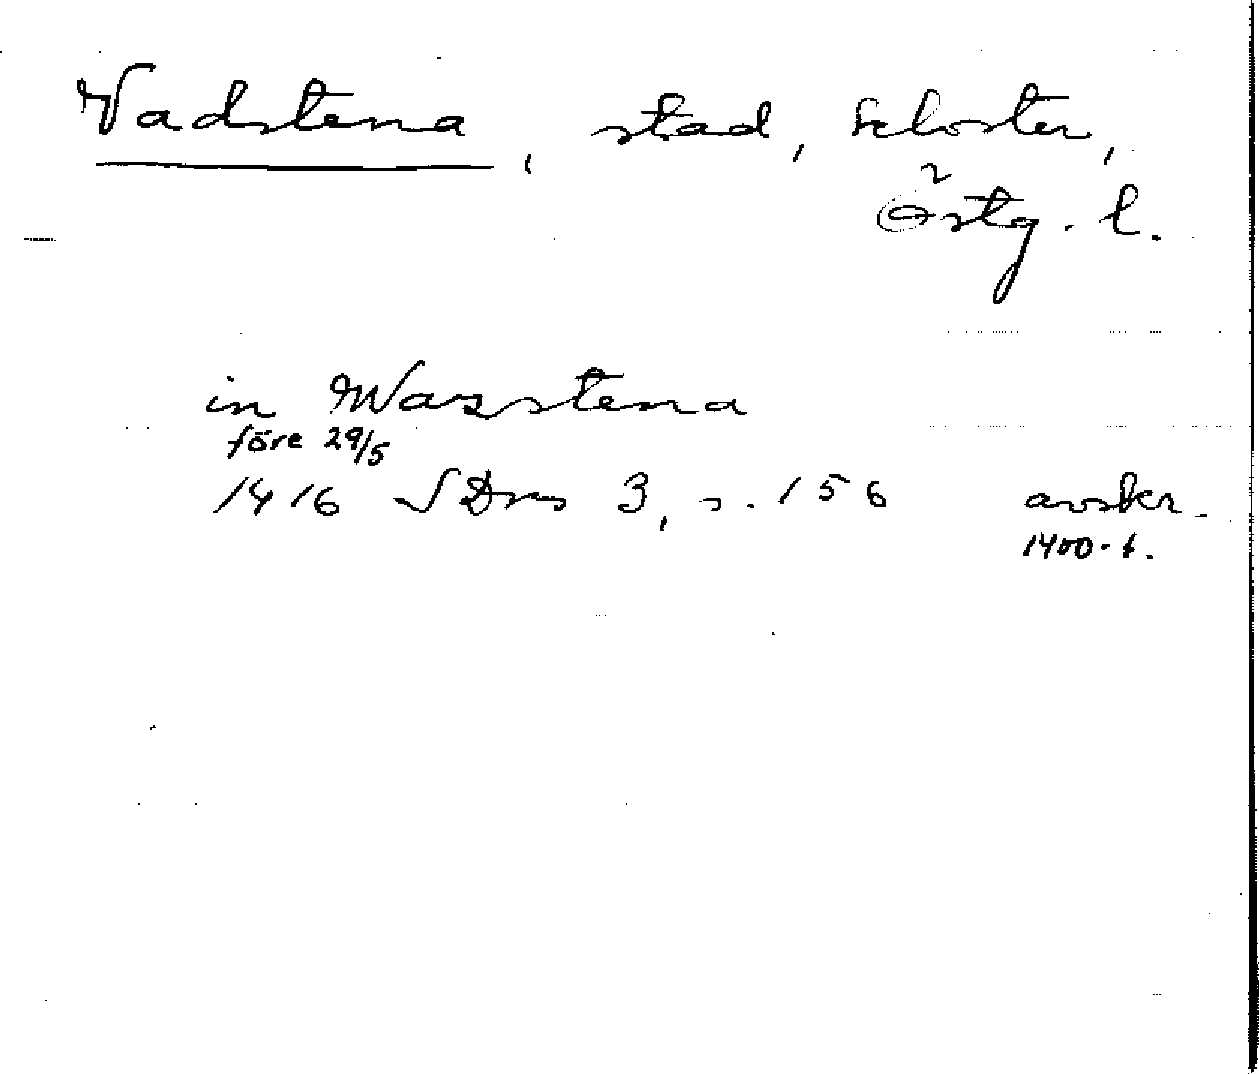 Vadstena, stad, kloster,
Östg. l.
in Wasstena
före 29/5
1416 SDns 3, s. 156 avskr.
1400-t.